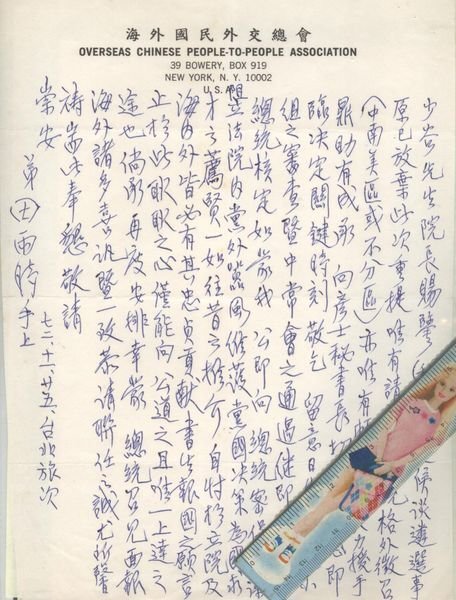 海外國民外交總會
OVERSEAS CHINESE PEOPLE-TO-PEOPLE ASSOCIATION
39 BOWERY, BOX 919
NEW YORK, N. Y. 10002
U. S. A.
少谷先生院長賜鑒 談遴選事
原已放棄此次重提唯有請 格外徵召
(中南美區或不分區)亦唯有 機手
鼎助有成承 向彥士秘書長 即
臨決定關鍵時刻敬乞 留意日 小
組之審查暨中常會之通過繼即
總統核定如蒙我 公即向 總統密保
且立法院內黨外 黨國決策為國求
才之薦賢一如往昔之推介 自忖於立院及
海內外皆必有其忠貞貢獻 書生報國之願言
止於此耿耿之心僅能向 公道之且唯一上達之
途也倘承再度安排幸蒙 總統召見面報
海外諸多喜訊暨一致恭請聯任之誠尤所馨
禱耑此奉懇敬請
崇安
弟 田雨時 手上
七二、十一、廿五、台北旅次